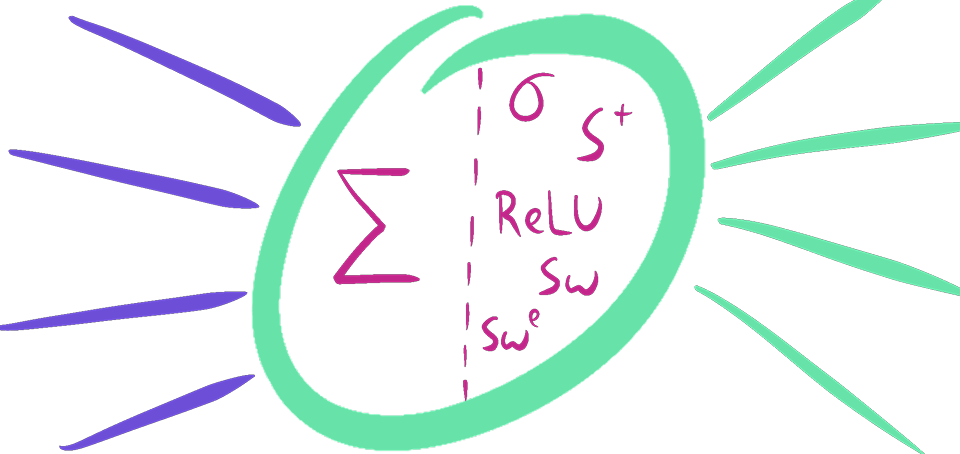 σ
S⁺
Σ
ReLU
sw
swᵉ